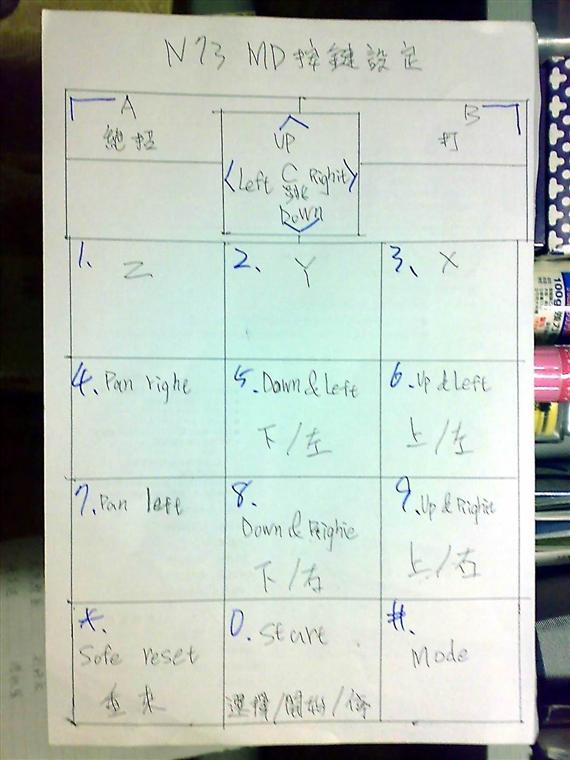 N73 MD 按鍵設定
A
絕招
B
打
UP
Left C Right
跳
Down
1. Z
2. Y
3. X
4. Pan righe
5. Down & Left
下/左
6. Up & Left
上/左
7. Pan left
8.
Down & Righe
下/右
9. Up & Right
上/右
*.
Sofe reset
重來
0. Start
選擇/開始/停
#.
Mode
100g